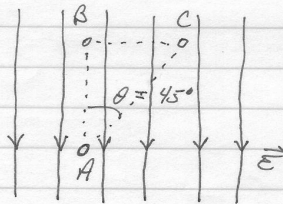 B C
θ, = 45°
A
E